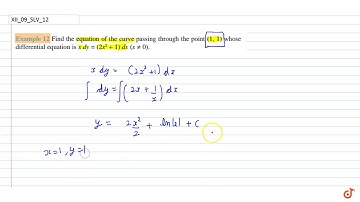 XII_09_SLV_12
Example 12 Find the equation of the curve passing through the point (1, 1) whose
differential equation is x dy = (2x² + 1) dx (x ≠ 0).
x dy = (2x² + 1) dx
∫ dy = ∫ (2x + 1/x) dx
y = 2x²/2 + ln|x| + C
x = 1, y = 1